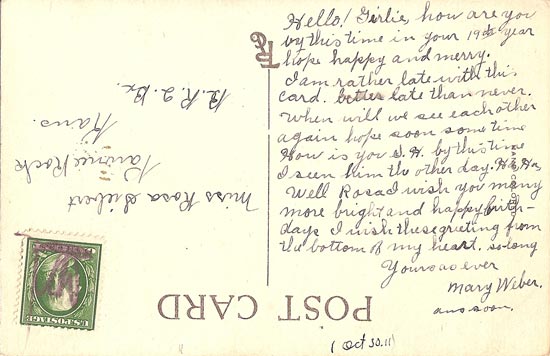 Hello! Girlie, how are you
by this time in your 19th year
hope happy and merry.
I am rather late with this
card. better late than never.
When will we see each other
again hope soon some time
How is you S. H. by this time
I seen him th other day. Ha Ha
Well Rosa I wish you many
more bright and happy birth-
days I wish these greeting from
the bottom of my heart. so long
Yours as ever
Mary Weber.
ans soon.
(Oct 30.11)
POST CARD
Miss Rosa Siebert
Pawnee Rock
Kans.
R.R. 2. Bx.
U.S. POSTAGE